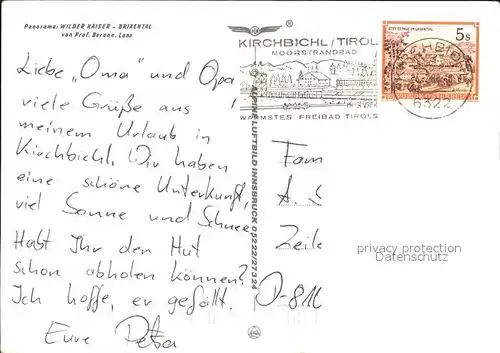 Panorama: WILDER KAISER - BRIXENTAL
von Prof. Berann, Lans
Liebe „Oma" und Opa!
viele Grüße aus
meinem Urlaub in
Kirchbichl. Wir haben
eine schöne Unterkunft,
viel Sonne und Schnee.
Habt Ihr den Hut
schon abholen können?
Ich hoffe, er gefällt.
Eure Petra
ALPINE LUFTBILD INNSBRUCK 05222/27324
®
KIRCHBICHL/TIROL
MOORSTRANDBAD
WÄRMSTES FREIBAD TIROLS
5s
KIRCHBICHL
6322
Fam
A. S
Zeile
D-811
privacy protection
Datenschutz